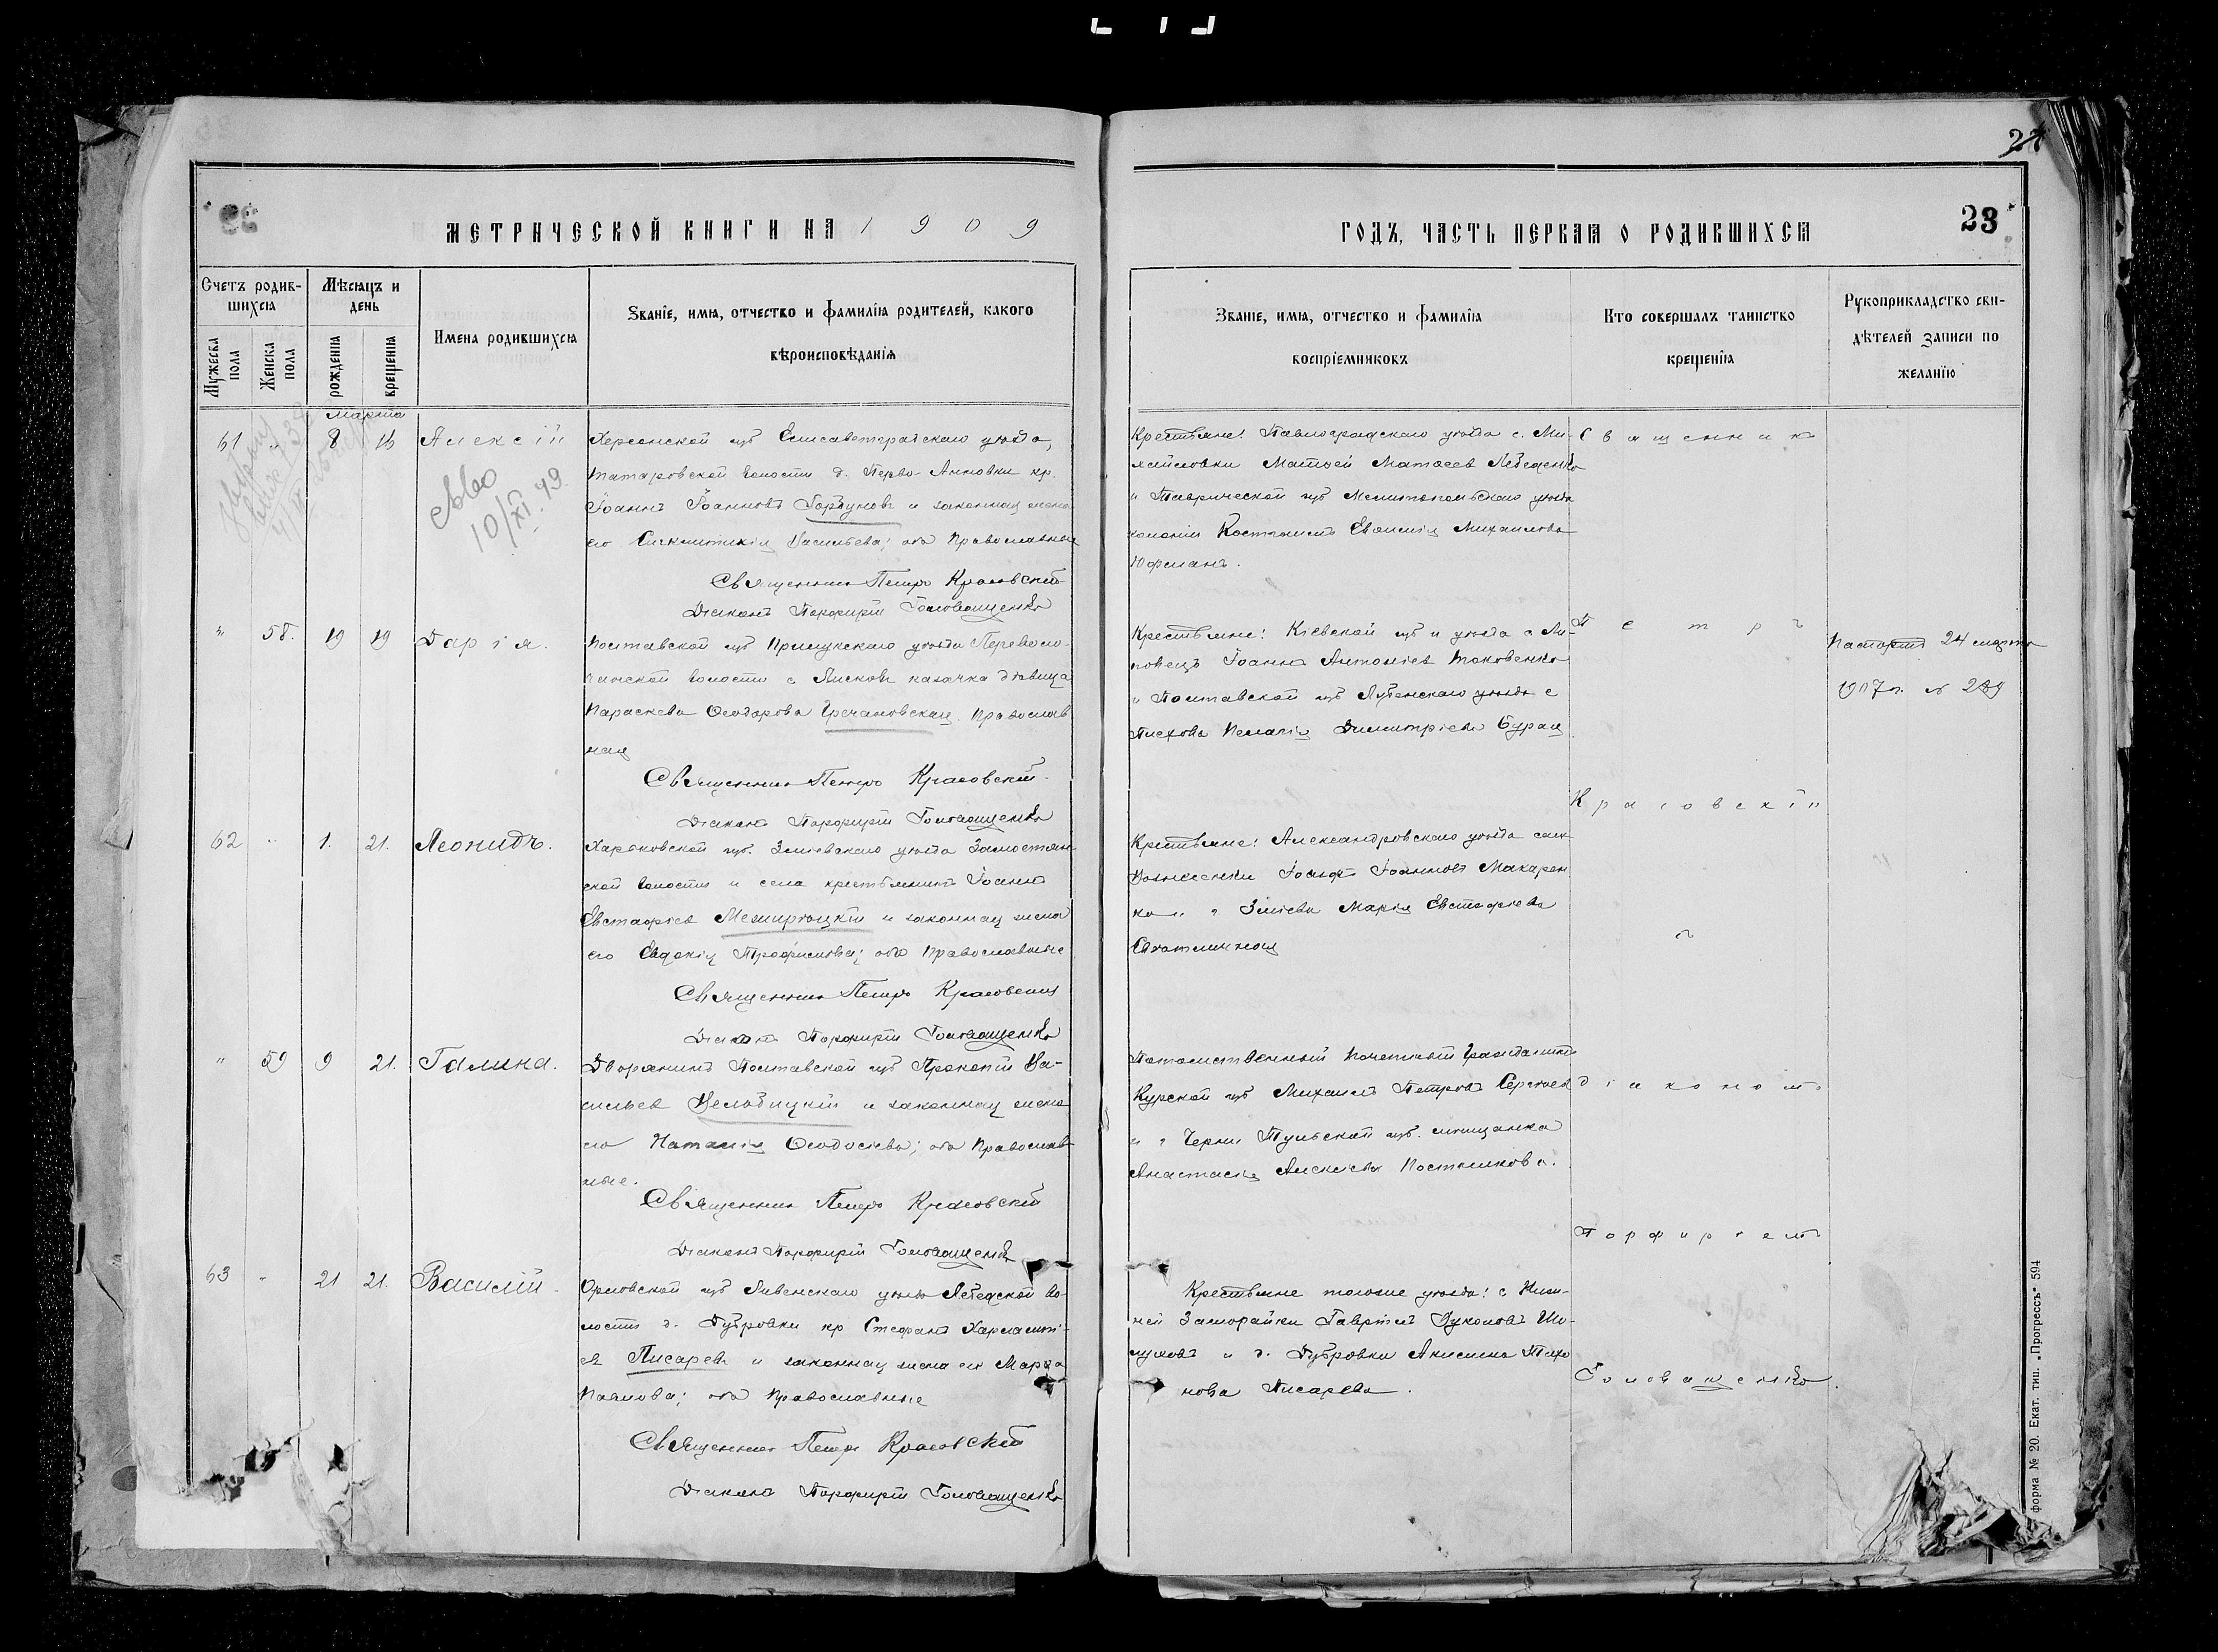 22
23
МЕТРИЧЕСКОЙ КНИГИ НА 1909
ГОДЪ, ЧАСТЬ ПЕРВАЯ О РОДИВШИХСЯ
Счетъ родив-
шихся
Мужеска пола
Женска пола
Мѣсяцъ и день
рожденія
крещенія
Имена родившихся
Званіе, имя, отчество и фамилія родителей, какого
вѣроисповѣданія
Званіе, имя, отчество и фамилія
воспріемниковъ
Кто совершалъ таинство
крещенія
Рукоприкладство сви-
дѣтелей записи по
желанію
Марта
61 " 8 16 Алексій
10/XI. 49.
Херсонской губ Елисаветградскаго уѣзда,
Татаровской волости д. Перво-Анновки кр.
Іоаннъ Іоанновъ Горбуновъ и законная жена
его Синклитикія Васильева; оба Православные
Священникъ Петръ Красовскій
Діаконъ Порфирій Головащенко
Крестьяне: Павлоградскаго уѣзда с. Ми-
хайловки Матѳей Матѳеевъ Лебеденко
и Таврической губ Мелитопольскаго уѣзда
колоніи Костгеймъ Евѳимія Михайлова
Юфманъ.
" 58. 19 19 Дарія.
Полтавской губ Прилукскаго уѣзда Перевело-
чанской волости с Лисковъ казачка дѣвица
Параскева Ѳеодорова Гречановская Православ
ная
Священникъ Петръ Красовскій
Діаконъ Порфирій Головащенко
Крестьяне: Кіевской губ и уѣзда с Ли-
повецъ Іоаннъ Антоніевъ Токовенко
и Полтавской губ Лубенскаго уѣзда с
Пелагія Димитріева Бурая
Паспортъ 24 марта
1907 г. № 289
62 " 1. 21. Леонидъ.
Харьковской губ. Зміевскаго уѣзда Замостян
ской волости и села крестьянинъ Іоаннъ
Евстафіевъ Межирѣцкій и законная жена
его Евдокія Трофимова; оба Православные
Священникъ Петръ Красовскій
Діаконъ Порфирій Головащенко
Крестьяне: Александровскаго уѣзда села
Вознесенки Іосифъ Іоанновъ Макарен
ко и г Зміева Марія Евстафіева
Свѣтличная
" 59 9 21. Галина.
Дворянинъ Полтавской губ Прокопій Ва-
сильевъ Велобицкій и законная жена
его Наталія Ѳеодосіева; оба Православ
ные.
Священникъ Петръ Красовскій
Діаконъ Порфирій Головащенко
Потомственный Почетный Гражданинъ
Курской губ Михаилъ Петровъ Сергѣевъ
и г Черни Тульской губ. мѣщанка
Анастасія Алексѣева Постникова.
63 " 21 21. Василій
Орловской губ Ливенскаго уѣзда Лебедской во-
лости д. Дубровки кр Стефанъ Харлампі-
евъ Писаревъ и законная жена его Марѳа
Павлова; оба Православные
Священникъ Петръ Красовскій
Діаконъ Порфирій Головащенко
Крестьяне того же уѣзда: с Ниж-
ней Заморайки Гавріилъ Лукояновъ
и д. Дубровки Анисина Тихо
нова Писарева.
Священникъ
Петръ
Красовскій
съ
діакономъ
Порфиріемъ
Головащенко.
форма № 20. Екат. тип. „Прогрессъ" 594